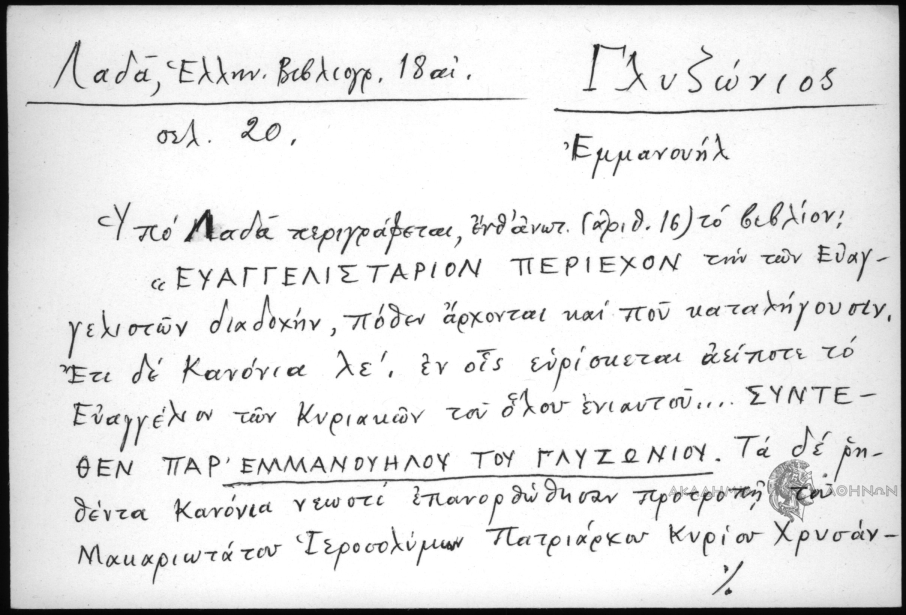 Λαδᾶ, Ἑλλην. Βιβλιογρ. 18 αἰ.
Γλυζώνιος
σελ. 20.
Ἐμμανουήλ
Ὑπό Λαδᾶ περιγράφεται, ἐνθ' ἀνωτ. (ἀριθ. 16) τό βιβλίον:
«ΕΥΑΓΓΕΛΙΣΤΑΡΙΟΝ ΠΕΡΙΕΧΟΝ τήν τῶν Εὐαγ-
γελιστῶν διαδοχήν, πόθεν ἄρχονται καί ποῦ καταλήγουσιν.
Ἔτι δέ Κανόνια λε'. ἐν οἷς εὑρίσκεται ἀείποτε τό
Εὐαγγέλιον τῶν Κυριακῶν τοῦ ὅλου ἐνιαυτοῦ.... ΣΥΝΤΕ-
ΘΕΝ ΠΑΡ' ΕΜΜΑΝΟΥΗΛΟΥ ΤΟΥ ΓΛΥΖΩΝΙΟΥ. Τά δέ ῥη-
θέντα Κανόνια νεωστί ἐπανορθώθησαν προτροπῇ τοῦ
ΑΚΑΔΗΜΙΑ ΑΘΗΝΩΝ
Μακαριωτάτου Ἱεροσολύμων Πατριάρχου Κυρίου Χρυσάν-
./.